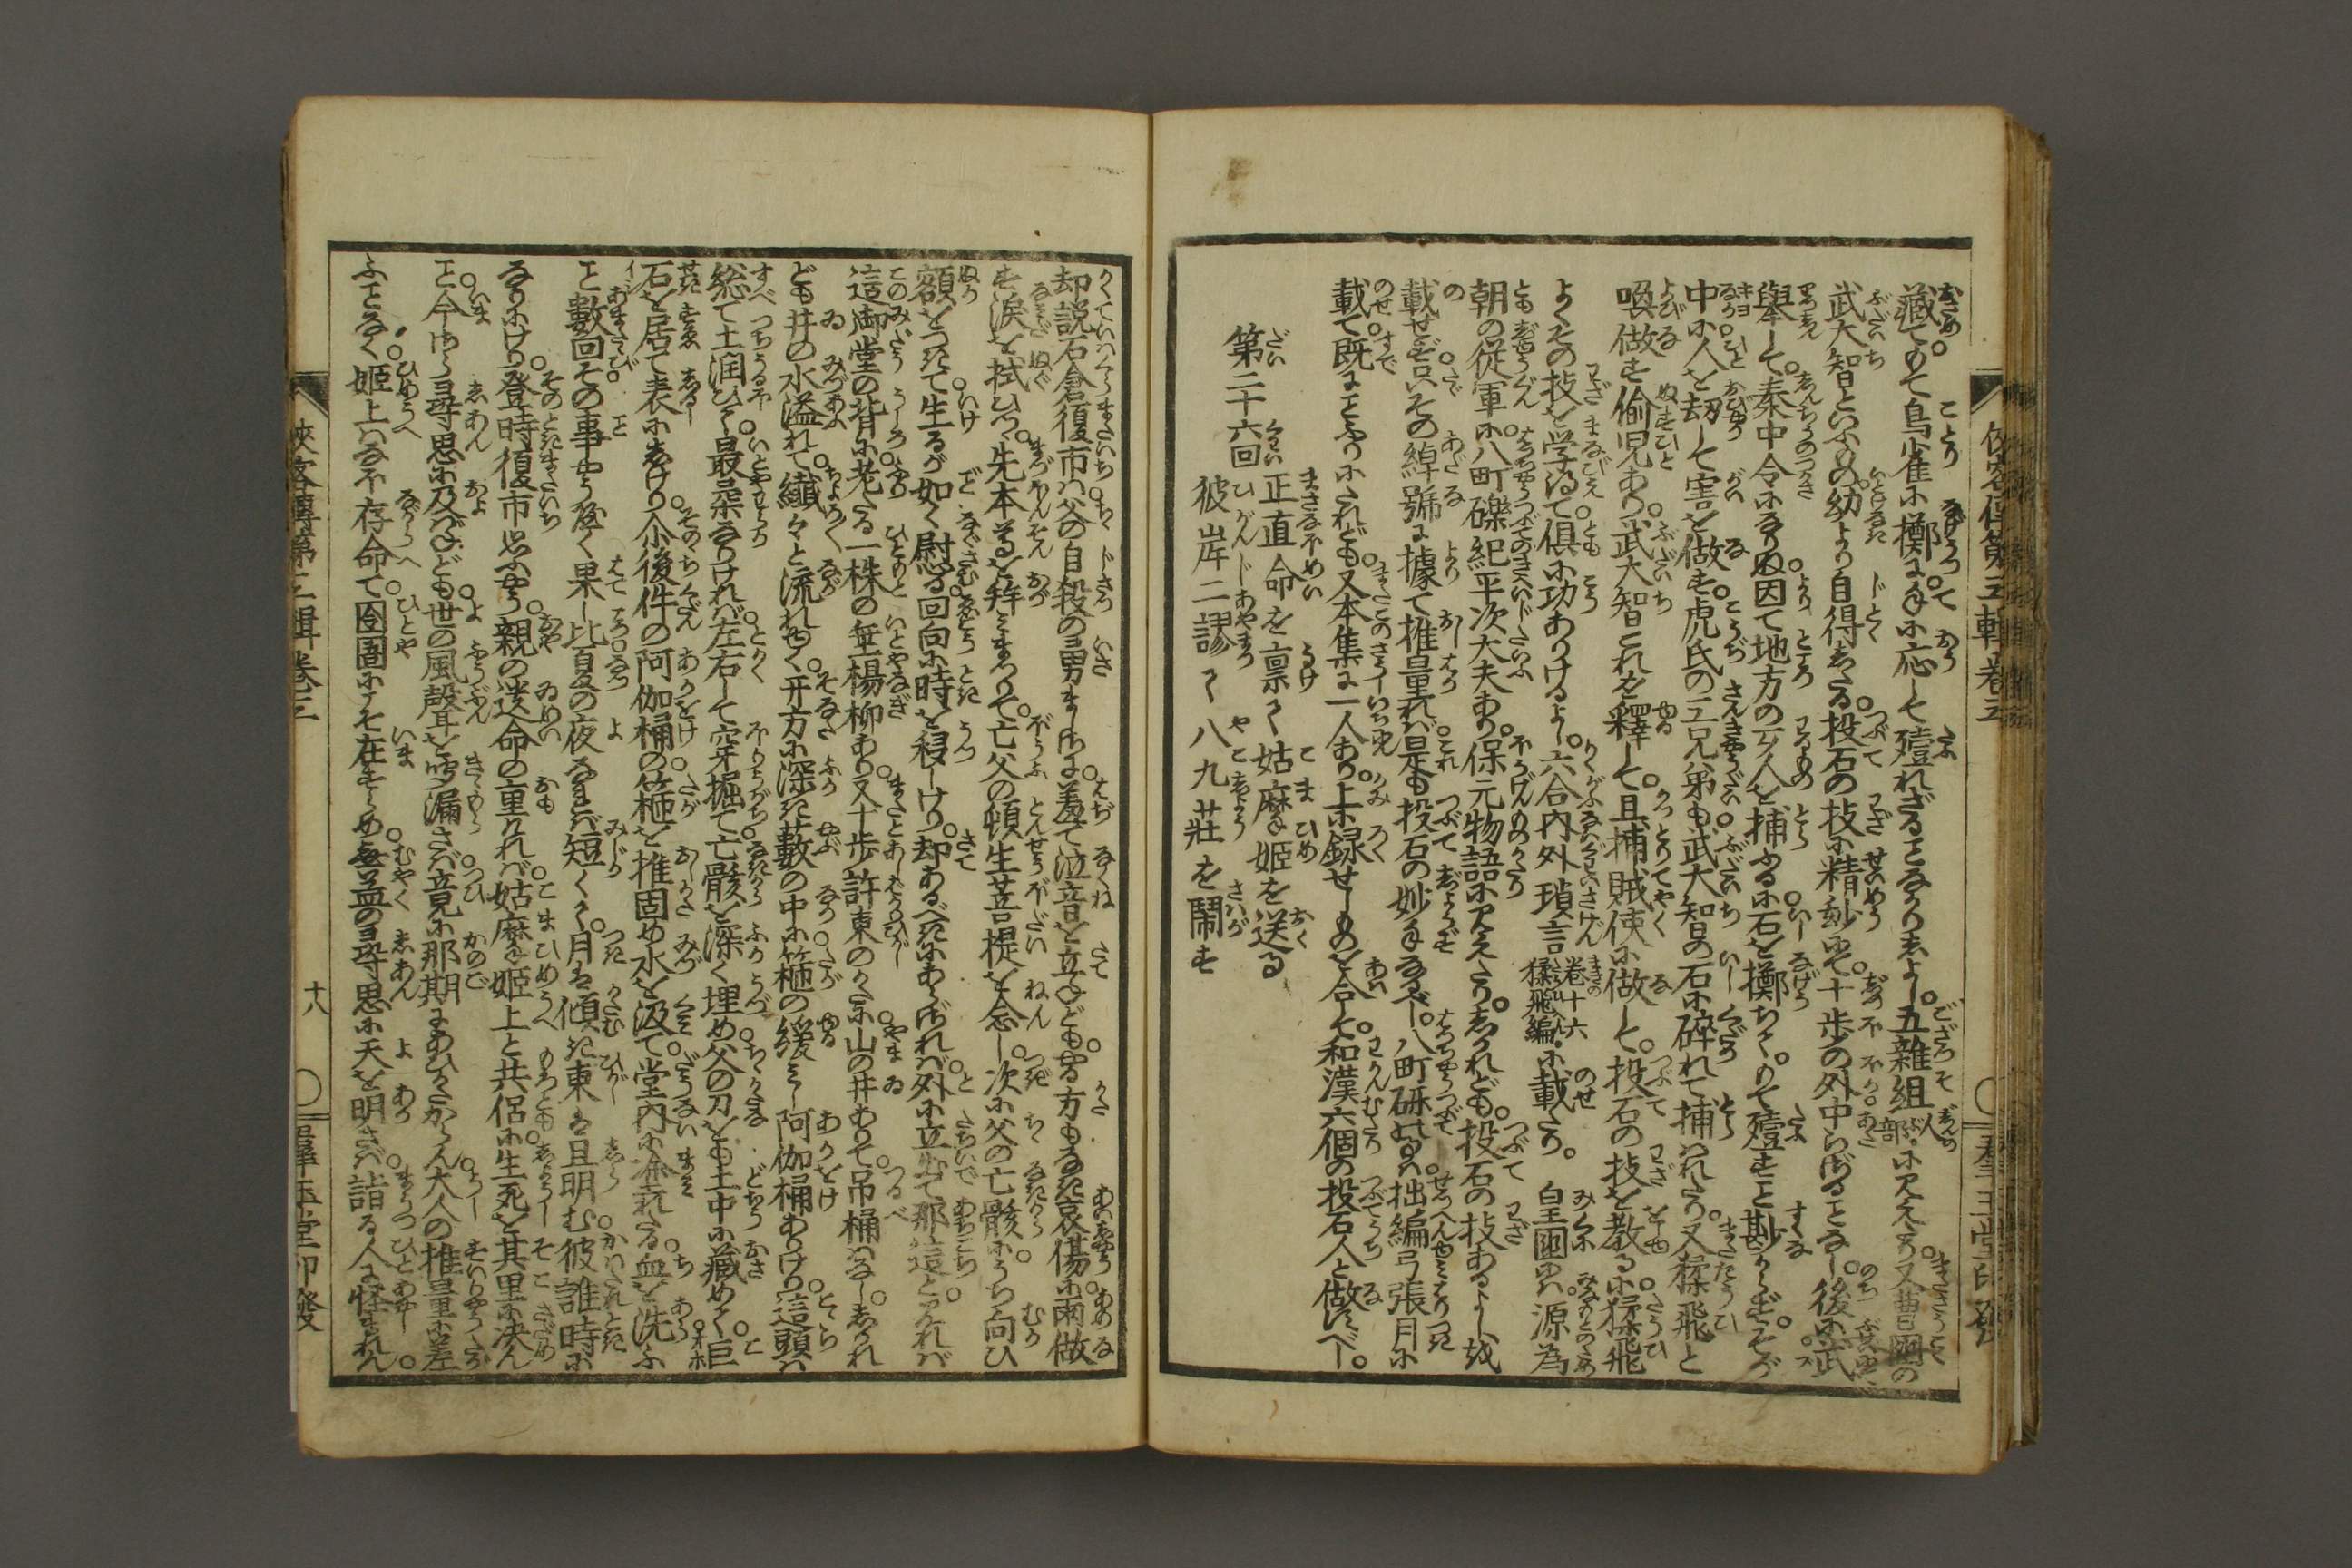 藏てもて鳥雀に擲に手に応して殪れざることなかりしとよし。五雜組人部に見えたり。又曹國の
武大智といふもの。幼より自得したる。投石の技に精妙にて。十歩の外中らざることなし。後に武
舉して。秦中令になりぬ。因て地方のヱ人を捕ふるに石を擲ちて。もて殪すこと尠からず。そが
中に人を刼して害を做す。虎氏の三兄弟も武大智の石に碎れて捕はれたり。又猱飛と
喚做す偷児あり。武大智これを釋して。且捕賊使に做して。投石の技を教るに。猱飛
よくその技を学得て。俱に功ありけるよし。六合内外瑣言卷十六猱飛編に載たり。皇國にては。源為
朝の従軍に。八町礫紀平次大夫あり。保元物語に見えたり。しかれども。投石の技あるよしを
載せず。その綽號に據て推量れば。是も投石の妙手なるべし。八町礫のるは拙編弓張月に
載て。既にことふりにたれども。又本集に一人あり。上に録せしものを合して。和漢六個の投石人と做すべし。
第二十六回
正直命を禀て姑摩姫を送る
彼岸二謬て八九莊を鬧す
俠客傳第三輯卷三
羣玉堂印發
却説石倉復市は父の自殺の勇ましきに。羞て泣音を立ねども。やる方もなき哀傷に。雨做
す涙を拭ひつゝ。先本尊を拜みまつりて。亡父の頓生菩提を念じ。次に父の亡骸にうち向ひ
額をつきて。生るが如く慰る。回向に時を移しけり。却あるべきにあらざれば。外に立出て那這と見れば
這御堂の背に。老たる一株の垂楊柳あり。又十歩許東のかたに山の井ありて。吊桶はなし。しかれ
ども井の水溢れて。纎々と流れゆく。开方に深き藪の中に。箍の緩みし阿伽桶ありけり。這頭は
総て土潤ひて。最柔なりければ。左右して穿掘て。亡骸を深く埋め。父の刀をも土中に藏めて。巨
石を居て表にしけり。尒後件の阿伽桶の箍を推固め。水を汲て。堂内に塗れたる血を洗ふ
こと數回。その事やうやく果し比。夏の夜なれば短くて。月は傾き東は且明む。彼誰時に
なりにけり。登時復市思ふやう。親の送命の重ければ。姑摩姫上と共侶に。生死を其里に決ん
こと。今さら尋思に及ばねども。世の風聲を嗅漏さば。竟に那期にあひがたからん。大人の推量に差
ふことなく。姫上はなほ存命て。囹圄にこそ在すらめ。無益の尋思に夭を明さば。詣る人に怪まれん
俠客傳第三輯卷三
十八
羣玉堂印發